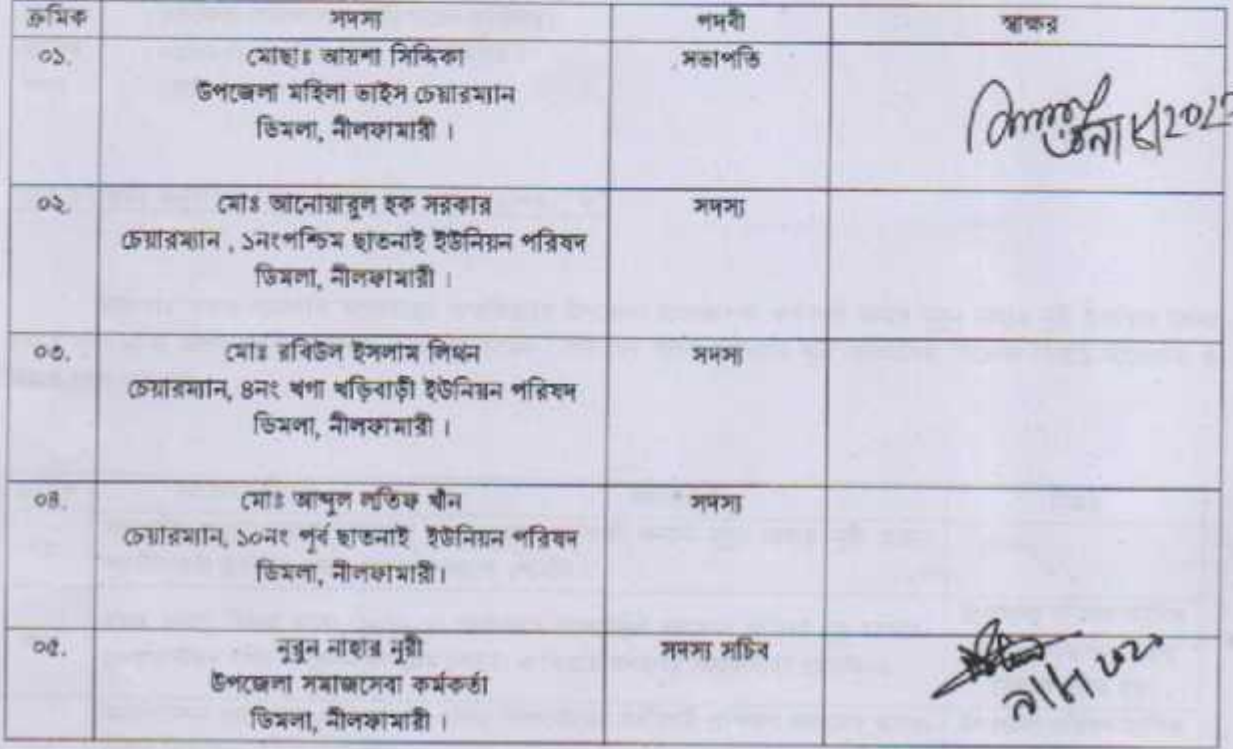 ক্রমিক সদস্য পদবী স্বাক্ষর
০১. মোছাঃ আয়শা সিদ্দিকা সভাপতি
উপজেলা মহিলা ভাইস চেয়ারম্যান
ডিমলা, নীলফামারী ।
০২. মোঃ আনোয়ারুল হক সরকার সদস্য
চেয়ারম্যান , ১নংপশ্চিম ছাতনাই ইউনিয়ন পরিষদ
ডিমলা, নীলফামারী ।
০৩. মোঃ রবিউল ইসলাম লিথন সদস্য
চেয়ারম্যান, ৪নং খগা খড়িবাড়ী ইউনিয়ন পরিষদ
ডিমলা, নীলফামারী ।
০৪. মোঃ আব্দুল লতিফ খাঁন সদস্য
চেয়ারম্যান, ১০নং পূর্ব ছাতনাই ইউনিয়ন পরিষদ
ডিমলা, নীলফামারী।
০৫. নুরুন নাহার নুরী সদস্য সচিব
উপজেলা সমাজসেবা কর্মকর্তা
ডিমলা, নীলফামারী ।